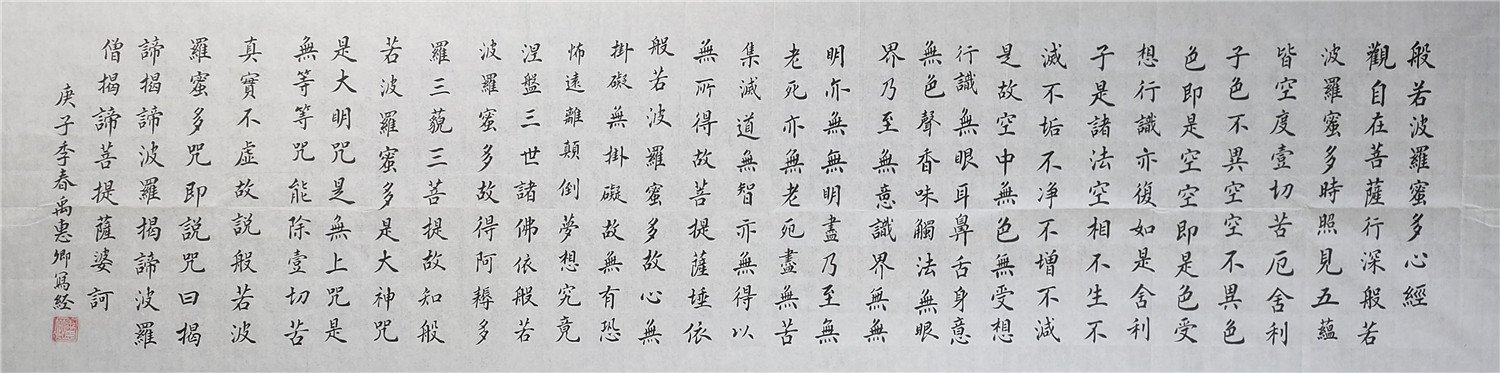 般若波羅蜜多心經
觀自在菩薩行深般若
波羅蜜多時照見五蘊
皆空度壹切苦厄舍利
子色不異空空不異色
色即是空空即是色受
想行識亦復如是舍利
子是諸法空相不生不
滅不垢不净不增不減
是故空中無色無受想
行識無眼耳鼻舌身意
無色聲香味觸法無眼
界乃至無意識界無無
明亦無無明盡乃至無
老死亦無老死盡無苦
集滅道無智亦無得以
無所得故菩提薩埵依
般若波羅蜜多故心無
掛礙無掛礙故無有恐
怖遠離顛倒夢想究竟
涅盤三世諸佛依般若
波羅蜜多故得阿耨多
羅三藐三菩提故知般
若波羅蜜多是大神咒
是大明咒是無上咒是
無等等咒能除壹切苦
真實不虛故説般若波
羅蜜多咒即説咒曰揭
諦揭諦波羅揭諦波羅
僧揭諦菩提薩婆訶
庚子季春禹惠卿寫經